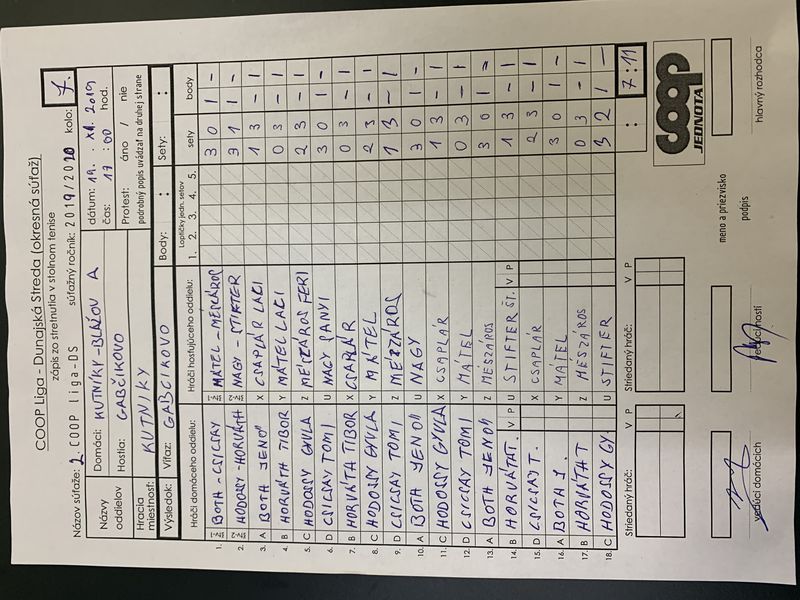 COOP Liga - Dunajská Streda (okresná súťaž)
zápis zo stretnutia v stolnom tenise
Názov súťaže: 2. COOP Liga-DS súťažný ročník: 2019/2020 kolo: 7.
Názvy oddielov Domáci: KUTNÍKY-BLAŽOV A dátum: 19. XI. 2019
Hostia: GABČÍKOVO čas: 17:00 hod.
Hracia miestnosť: KUTNIKY Protest: áno / nie
podrobný popis uvádzať na druhej strane
Výsledok: Víťaz: GABCIKOVO Body: : Sety: :
Hráči domáceho oddielu: Hráči hosťujúceho oddielu: Loptičky jedn. setov sety body
1. 2. 3. 4. 5.
1. BOTH - CSICSAY MÁTEL - MÉSZÁROS 3 0 1 -
2. HODOSSY-HORVÁTH NAGY - STIFTER 3 1 1 -
3. A BOTH JENŐ X CSAPLÁR LACI 1 3 - 1
4. B HORVÁTH TIBOR Y MÁTEL LACI 0 3 - 1
5. C HODOSSY GYULA Z MÉSZÁROS FERI 2 3 - 1
6. D CSICSAY TOMI U NAGY SANYI 3 0 1 -
7. B HORVÁTH TIBOR X CSAPLÁR 0 3 - 1
8. C HODOSSY GYULA Y MÁTEL 2 3 - 1
9. D CSICSAY TOMI Z MÉSZÁROS 1 3 - 1
10. A BOTH JENŐ U NAGY 3 0 1 -
11. C HODOSSY GYULA X CSAPLÁR 1 3 - 1
12. D CSICSAY TOMI Y MÁTEL 0 3 - 1
13. A BOTH JENŐ Z MESZAROS 3 0 1 -
14. B HORVÁTH T. V P U STIFTER ŠT. V P 1 3 - 1
15. D CSICSAY T. X CSAPLÁR 2 3 - 1
16. A BOTH J. Y MÁTEL 3 0 1 -
17. B HORVÁTH T Z MÉSZÁROS 0 3 - 1
18. C HODOSSY GY. U STIFTER 3 2 1 -
Striedaný hráč: V P Striedaný hráč: V P : 7:11
COOP
JEDNOTA
meno a priezvisko
podpis
vedúci domácich vedúci hostí hlavný rozhodca